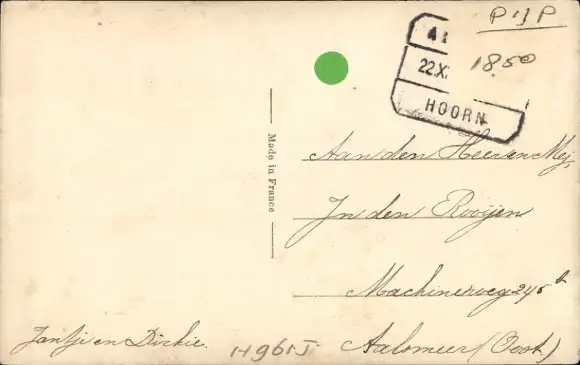 P !] P
4
22.X.
18.50
HOORN
Made in France
Aan den Heer en Mej,
Jn den Rooijen
Machineweg 245 b
Aalsmeer (Oost)
Jantje en Dirkie.